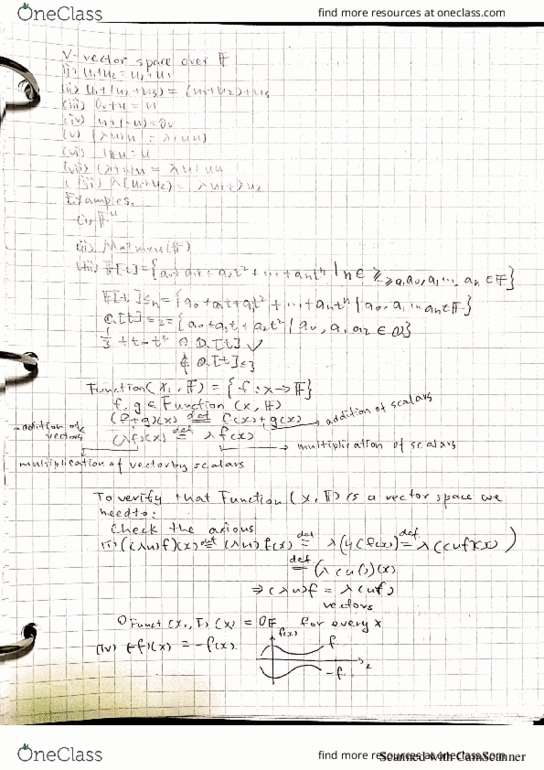 OneClass
find more resources at oneclass.com
V-vector space over F
i) u₁+u₂ = u₂+u₁
ii) u₁+(u₂+u₃) = (u₁+u₂)+u₃
(iii) 0ᵥ+u = u
(iv) u+(-u)=0ᵥ
(v)
(vi)
(vii)
λ(u₁+u₂)
Examples.
(i) Fⁿ
(ii)
(iii) F[t] = {a₀+a₁t+a₂t²+...+aₙtⁿ | n∈ ℤ≥0, a₀, a₁, ... aₙ ∈ F}
F[t]≤n = {a₀+a₁t+a₂t²+...+aₙtⁿ | a₀, a₁ ... aₙ ∈ F}
Q[t]≤2 = {a₀+a₁t+a₂t² | a₀, a₁, a₂ ∈ Q}
1/3 + t - t² ∈ Q[t] ✓
Q[t]≤3
Function(x, F) = {f: x→F}
f, g ∈ Function (x, F)
(f+g)(x) def= f(x)+g(x) → addition of scalars
addition of vectors
(λf)(x) def= λ f(x) → multiplication of scalars
multiplication of vector by scalars
To verify that Function (x, F) is a vector space we
need to:
Check the axioms
((λu)f)(x) def= (λu)f(x) def= λ(u(f(x)) def= λ((uf)(x))
def= (λ(uf))(x)
⇒ (λu)f = λ(uf)
vectors
0 Funct (x, F) (x) = 0F for every x
(iv) (-f)(x) = -f(x).
f(x)
f
x
-f
OneClass
find more resources at oneclass.com
Scanned with CamScanner